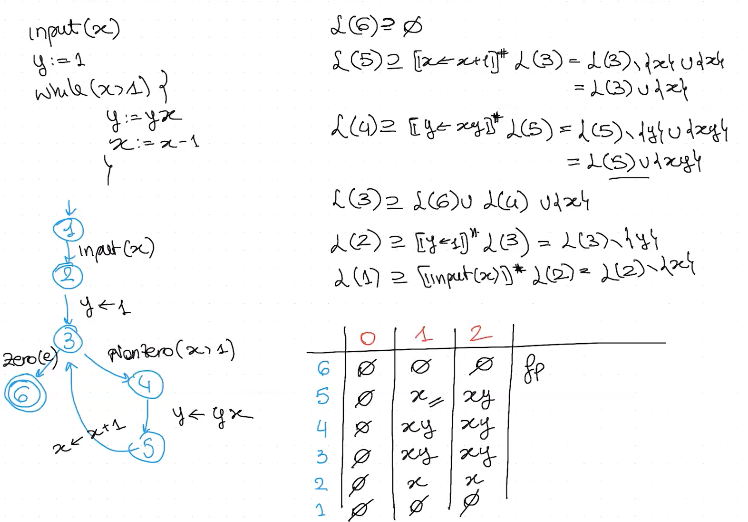 input(x)
y:=1
while(x>1) {
y:=yx
x:=x-1
}
1
input(x)
2
y←1
3
zero(e)
NonZero(x>1)
6
4
y←yx
x←x+1
5
L(6)⊇∅
L(5)⊇[[x←x+1]]# L(3) = L(3)\{x}∪{x}
= L(3)∪{x}
L(4)⊇[[y←xy]]# L(5) = L(5)\{y}∪{xy}
= L(5)∪{xy}
L(3)⊇L(6)∪L(4)∪{x}
L(2)⊇[[y←1]]# L(3) = L(3)\{y}
L(1)⊇[[input(x)]]# L(2) = L(2)\{x}
0 1 2
6 ∅ ∅ ∅ fp
5 ∅ x xy
4 ∅ xy xy
3 ∅ xy xy
2 ∅ x x
1 ∅ ∅ ∅